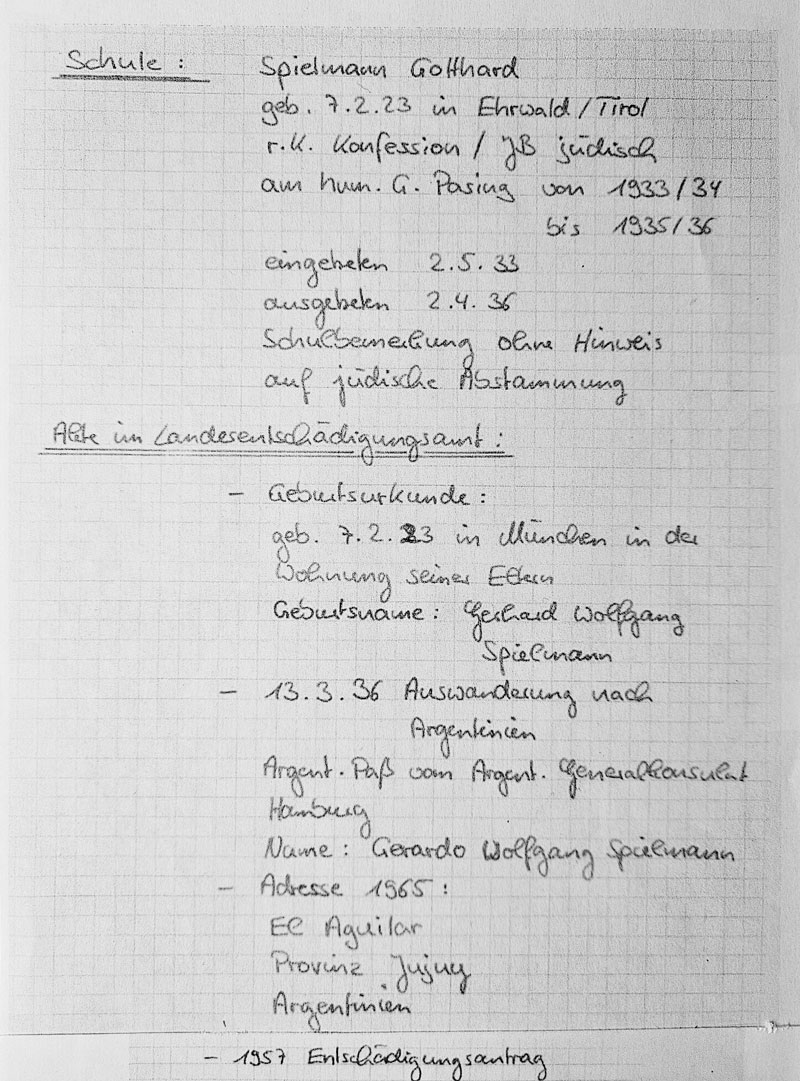 Schule :
Spielmann Gotthard
geb. 7.2.23 in Ehrwald / Tirol
r.K. Konfession / JB jüdisch
am hum. G. Pasing von 1933/34
bis 1935/36
eingetreten 2.5.33
ausgetreten 2.4.36
Schulbemerkung ohne Hinweis
auf jüdische Abstammung
Akte im Landesentschädigungsamt :
– Geburtsurkunde :
geb. 7.2.23 in München in der
Wohnung seiner Eltern
Geburtsname : Gerhard Wolfgang
Spielmann
– 13.3.36 Auswanderung nach
Argentinien
Argent. Paß vom Argent. Generalkonsulat
Hamburg
Name : Gerardo Wolfgang Spielmann
– Adresse 1965 :
El Aguilar
Provinz Jujuy
Argentinien
– 1957 Entschädigungsantrag